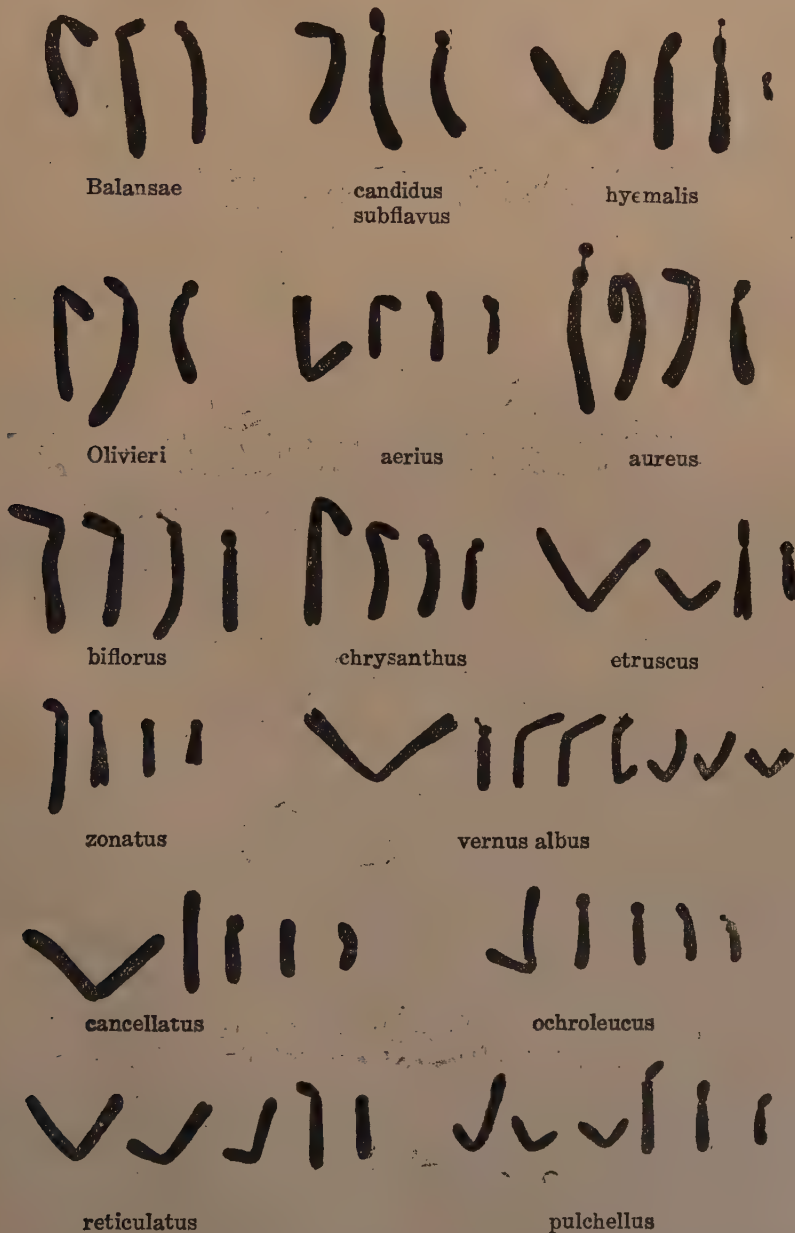 Balansae
candidus
subflavus
hyemalis
Olivieri
aerius
aureus
biflorus
chrysanthus
etruscus
zonatus
vernus albus
cancellatus
ochroleucus
reticulatus
pulchellus